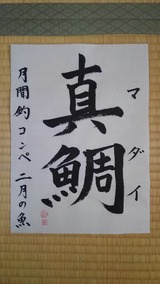 真鯛
マダイ
月間釣コンペ 二月の魚